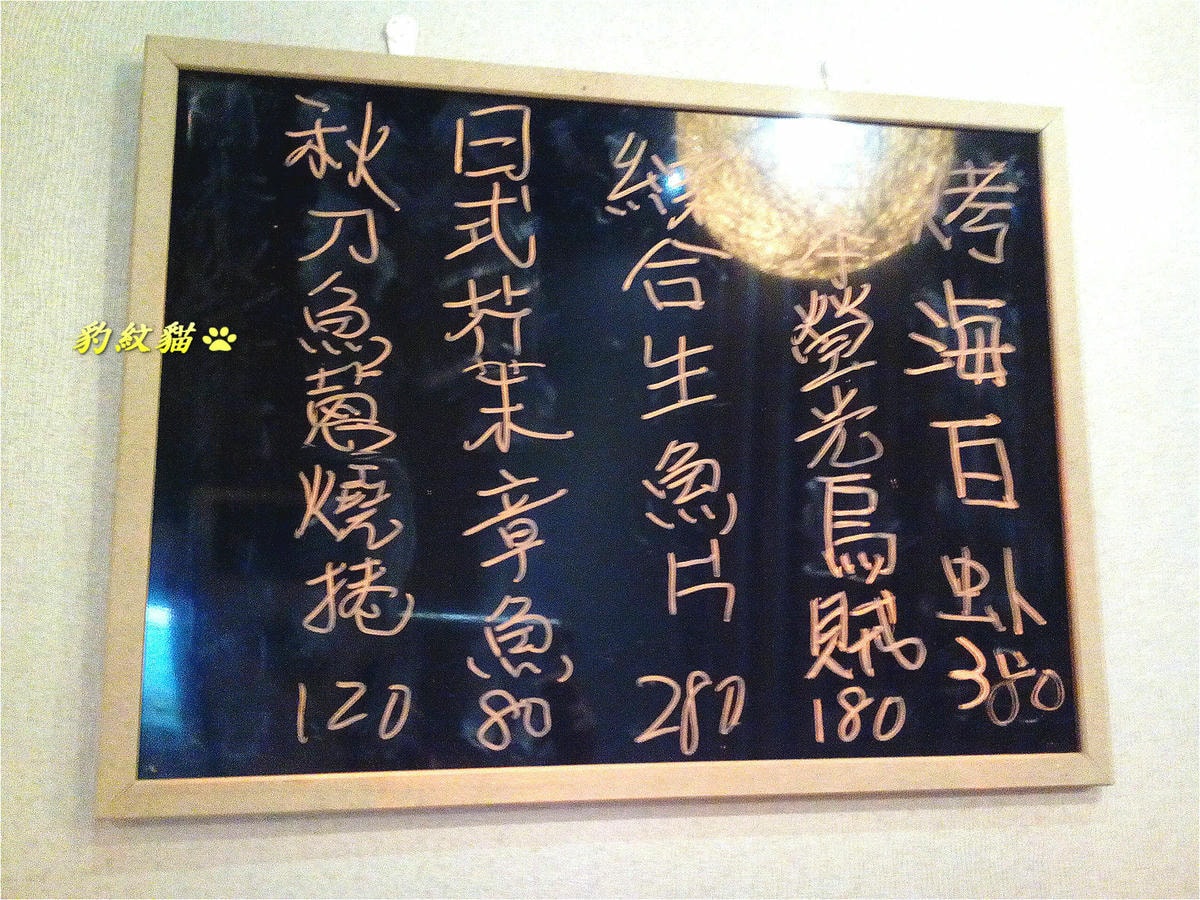 烤海百虾380
本螢光烏賊180
綜合生魚片280
日式芥茉章魚80
秋刀魚蔥燒捲120
豹紋貓